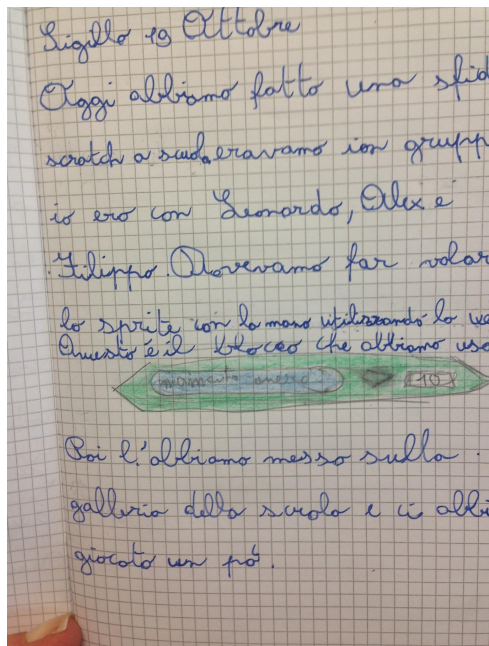 Sigillo 19 Ottobre
Oggi abbiamo fatto una sfid
scratch a scuola, eravamo ion grupp
io ero con Leonardo, Alex e
Filippo. Dovevamo far volar
lo sprite con la mano utilizzando la we
Questo è il blocco che abbiamo uso
movimento 10
Poi l'abbiamo messo sulla
galleria della scuola e ci abbi
giocato un pó.